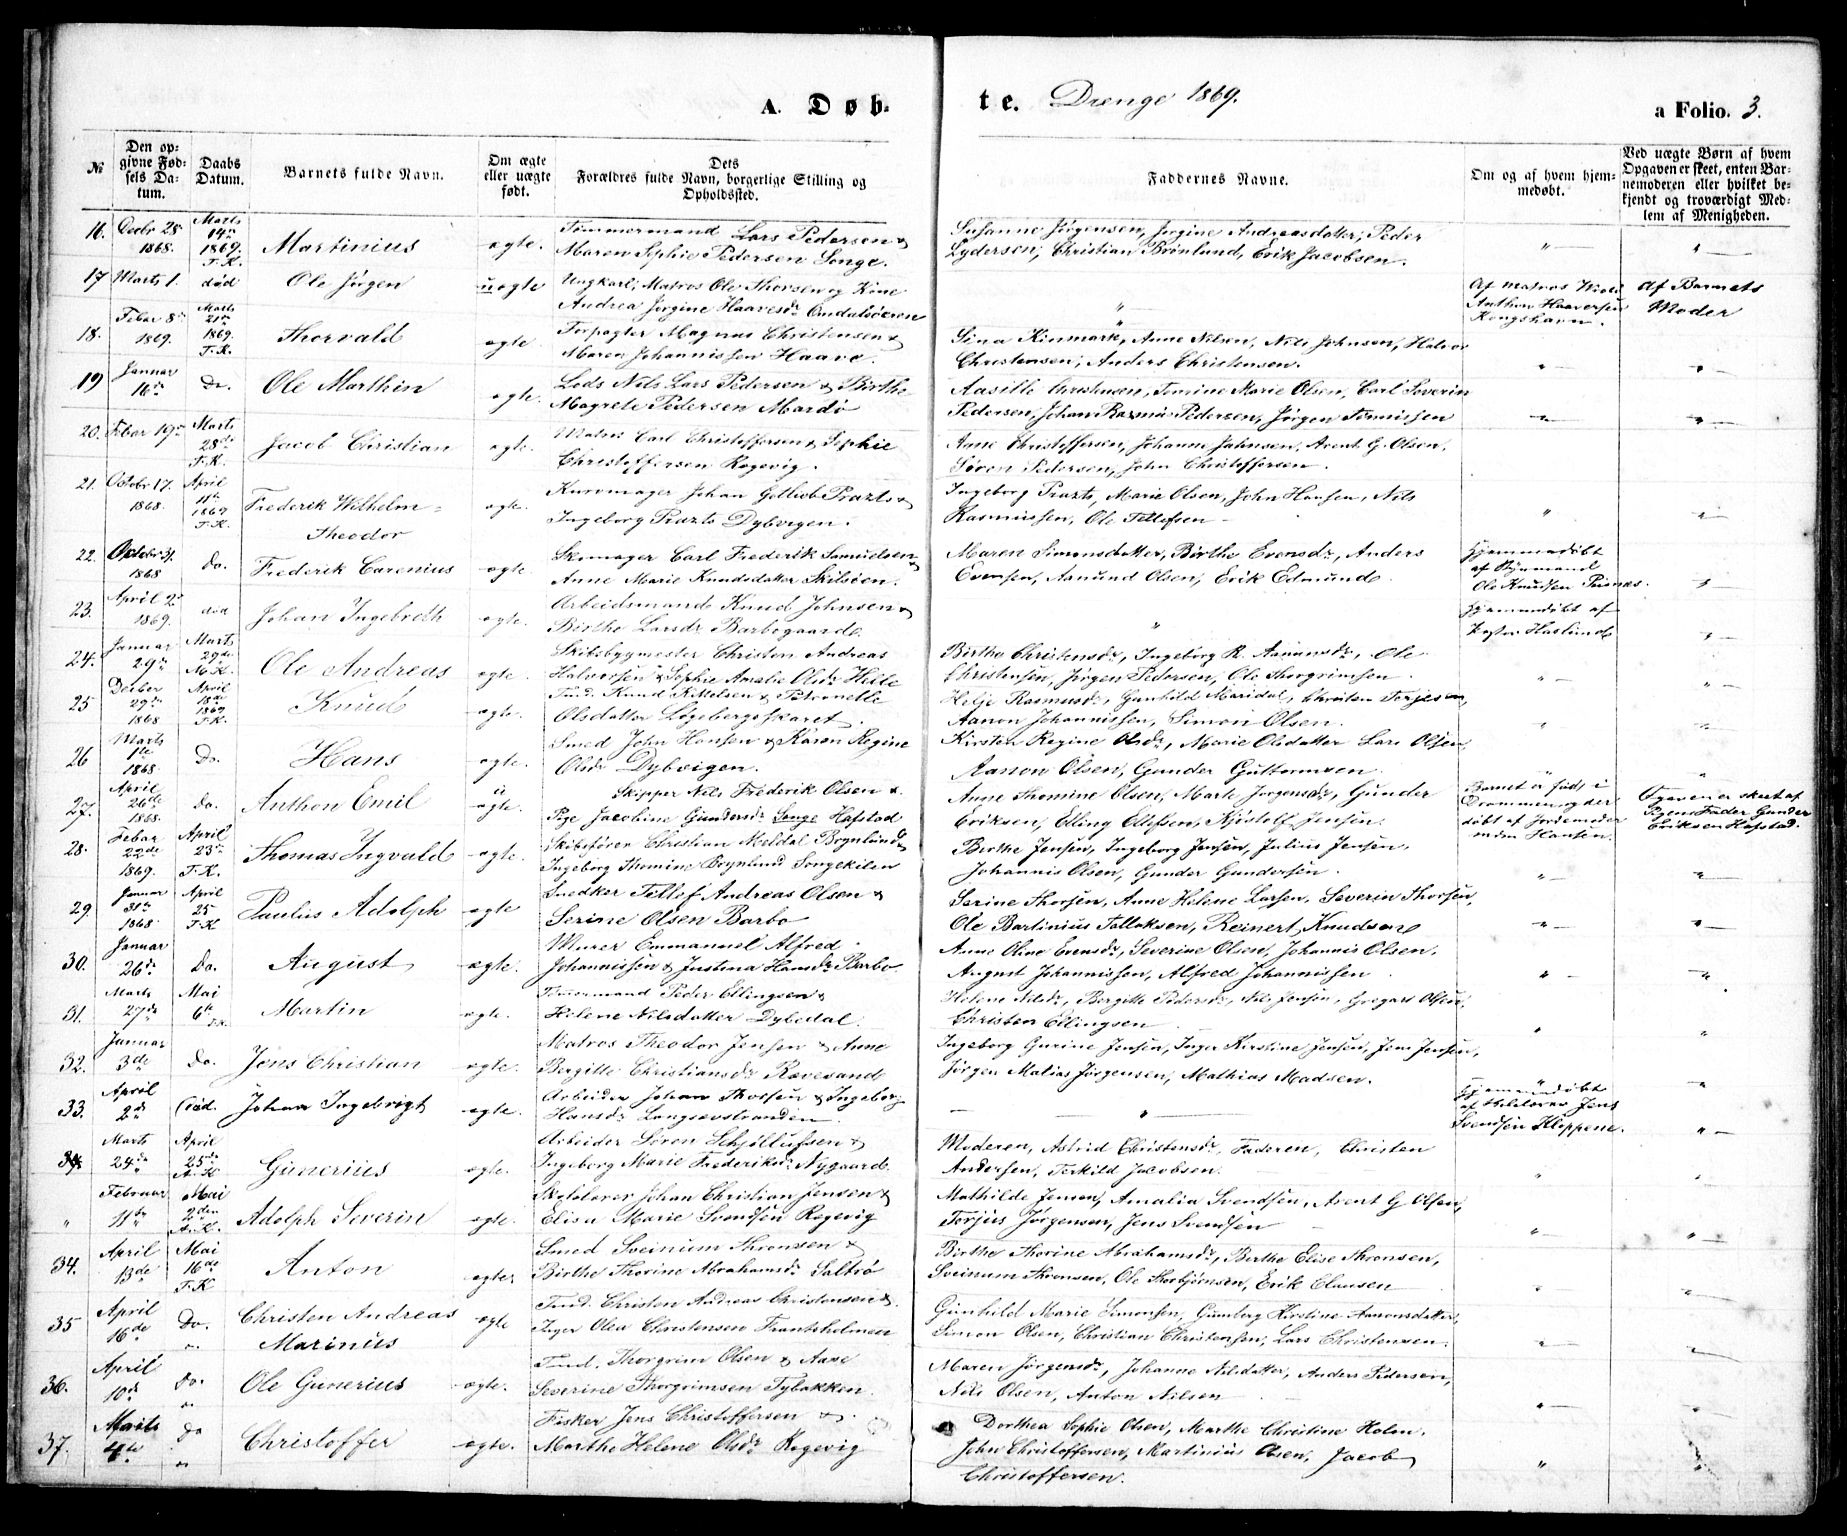 A. Døb- te. Drenge 1869. a Folio. 3.
№
Den opgivne Fødsels Datum.
Daabs Datum.
Barnets fulde Navn.
Om ægte eller uægte født.
Dets Forældres fulde Navn, borgerlige Stilling og Opholdssted.
Faddernes Navne.
Om og af hvem hjemmedøbt.
Ved uægte Børn af hvem Opgaven er skeet, enten Barnemoderen eller hvilket bekjendt og troværdigt Medlem af Menigheden.
16. Decbr 28 1868. Marts 14de 1869. T.K. Martinius ægte. Tømmermand Lars Pedersen &
Maren Sophie Pedersen Songe.
Susanne Jørgensen, Jørgine Andreasdatter, Peder
Lydersen, Christian Brønlund, Erik Jacobsen.
17 Marts 1. død Ole Jørgen uægte Ungkarl, Matros Ole Thorsen og Kone
Andrea Jørgine Haavesdr
Af Matros
Anthon Haaversen
Kongshavn.
Af Barnets
Moder
18. Febar 8de 1869. Marts 21de 1869. T.K. Thorvald ægte. Forpagter Magnus Christensen &
Maren Johannissen Haave.
Gina Kinmark, Anne Nilsen, Nils Johnsen, Halvor
Christensen, Anders Christensen.
19 Januar 16de Do. Ole Marthin ægte. Lods Nils Lars Pedersen & Birthe
Magrete Pedersen Mardø
Aasille Christensen, Tomine Marie Olsen, Carl Severin
Pedersen, Johan Rasmus Pedersen, Jørgen Tønnissen
20. Febar 19de Marts 28de T.K. Jacob Christian ægte. Matros Carl Christoffersen & Sophie
Christoffersen Kogevig.
Anne Christoffersen, Johanne Johnsen, Arent G. Olsen,
Søren Pedersen, John Christoffersen.
21. Octobr 17. 1868. April 11te 1869 T.K. Frederik Wilhelm
Theodor ægte. Kurvmager Johan Gotlieb Prazts &
Ingeborg Prazts Dybvigen.
Ingeborg Prazts, Marie Olsen, John Hansen, Nils
Rasmussen, Ole Tellefsen
22. Octobr 31. 1868 Do. Frederik Carenius ægte. Skomager Carl Frederik Samuelsen &
Anne Marie Knudsdatter Skilsøen.
Maren Simonsdatter, Birthe Evensdr, Anders
Evensen, Aanund Olsen, Erik Edmund.
Hjemmedøbt
af Styrmand
Ole Knudsen
23. April 2de 1869. død Johan Ingebreth ægte. Arbeidsmand Knud Johnsen &
Birthe Larsdr Barbogaard.
Hjemmedøbt af
Haslund
24. Januar 29de Marts 29de Ole Andreas ægte. Skibsbygmester Christen Andreas
Halvorsen & Sophie Amalie Olsdr Helle
Birthe Christensdr, Ingeborg K. Aanonsdr, Ole
Christensen, Jørgen Pedersen, Ole Thorgrimsen.
25 Decber 29de 1868 April 18de 1869 T.K. Knud ægte. Ind. Knud Kittelsen & Petronelle
Olsdatter Løgebergsskaret.
Helje Rasmusdr, Gunhild Mariedal, Christen Terjesen,
Aanon Johannissen, Simon Olsen.
26 Marts 1te 1868. Do. Hans ægte. Smed John Hansen & Karen Regine
Olsdr Dybvigen.
Kirsten Regine Olsdr, Marie Olsdatter Lars Olsen,
Aanon Olsen, Gunder Guttormsen
27. April 26de 1868. Do. Anthon Emil uægte. Skipper Nils Frederik Olsen &
Pige Jacobine Gundersdr Songe Hafstad
Anne Thomine Olsen, Marte Jørgensdr, Gunder
Eriksen, Elling Ellefsen, Kjøstolf Jensen.
Barnet er født i
Drammen og der
døbt af Jordemoder
Hansen.
Opgaven er skeet af
Pigens Fader Gunder
Eriksen Hafstad.
28. Febar 22de 1869. April 23de T.K. Thomas Ingvald ægte. Skibsfører Christian Meldal Brynlund &
Ingeborg Thomine Brynlund Songekilen
Birthe Jensen, Ingeborg Jensen, Julius Jensen,
Johannis Olsen, Gunder Gundersen.
29. Januar 31te 1868 April 25 T.K Paulus Adolph ægte Snedker Tellef Andreas Olsen &
Serine Olsen Barbo
Serine Thorsen, Anne Helene Larsen, Severin Thorsen,
Ole Bartinius Tallaksen, Reinert Knudsen
30. Januar 26de Do. August ægte. Murer Emmanuel Alfred
Johannissen & Justina Hansdr Barbo
Anne Oline Evensdr, Severine Olsen, Johannis Olsen.
August Johannissen, Alfred Johannissen
31. Marts 27de Mai 6te T.K. Martin ægte. Tømmermand Peder Ellingsen &
Helene Nilsdatter Dybedal.
Helene Nilsdr, Bergitte Pedersdr, Nils Jensen, Gregars Olsen,
Christen Ellingsen
32. Januar 3de Do. Jens Christian ægte. Matros Theodor Jensen & Anne
Bergitte Christiansdr Rævesand
Ingeborg Gurine Jensen, Inger Kirstine Jensen, Jens Jensen,
Jørgen Malias Jørgensen, Mathias Madsen.
33. April 2de død. Johan Ingebrigt ægte. Arbeider Johan Thorsen & Ingeborg
Hansdr Langsævstranden.
Hjemmedøbt
af Skolelærer Jens
Svendsen Kloppene.
34 Marts 24de April 25de Gunerius ægte. Arbeider Søren Schjøllufssen &
Ingeborg Marie Frederiksdr Nygaard.
Moderen, Astrid Christensdr, Faderen, Christen
Andersen, Terkild Jacobsen.
" Februar 11te Mai 2den Adolph Severin ægte. Skolelærer Johan Christian Jensen &
Elisa Marie Svendsen Kogevig
Mathilde Jensen, Amalia Svendsen, Arent G Olsen,
Torjus Jørgensen, Jens Svendsen
34. April 13de Mai 16de T.K Anton ægte. Smed Sveinum Thronsen &
Birthe Thorine Abrahamsdr Saltrø
Birthe Thorine Abrahamsdr, Berthe Elise Thronsen,
Sveinum Thronsen, Ole Thorbjørnsen, Erik Clausen
35 April 16de Do. Christen Andreas
Marinius ægte Ind. Christen Andreas Christensen &
Inger Olea Christensen Frantsholmen
Gunhild Marie Simonsen, Gunborg Kirstine Aanonsdatter,
Simon Olsen, Christian Christensen, Lars Christensen.
36. April 10de Do. Ole Gunerius ægte. Ind. Thorgrim Olsen & Aase
Severine Thorgrimsen Tybakken.
Maren Jørgensdr, Johanne Nilsdatter, Anders Pedersen,
Nils Olsen, Anton Nilsen
37. Marts 4de Do Christoffer ægte. Fisker Jens Christoffersen &
Marthe Helene Olsdr Kogevig
Dorthea Sophie Olsen, Marthe Christine Holm.
John Christoffersen, Martinius Olsen, Jacob
Christoffersen.